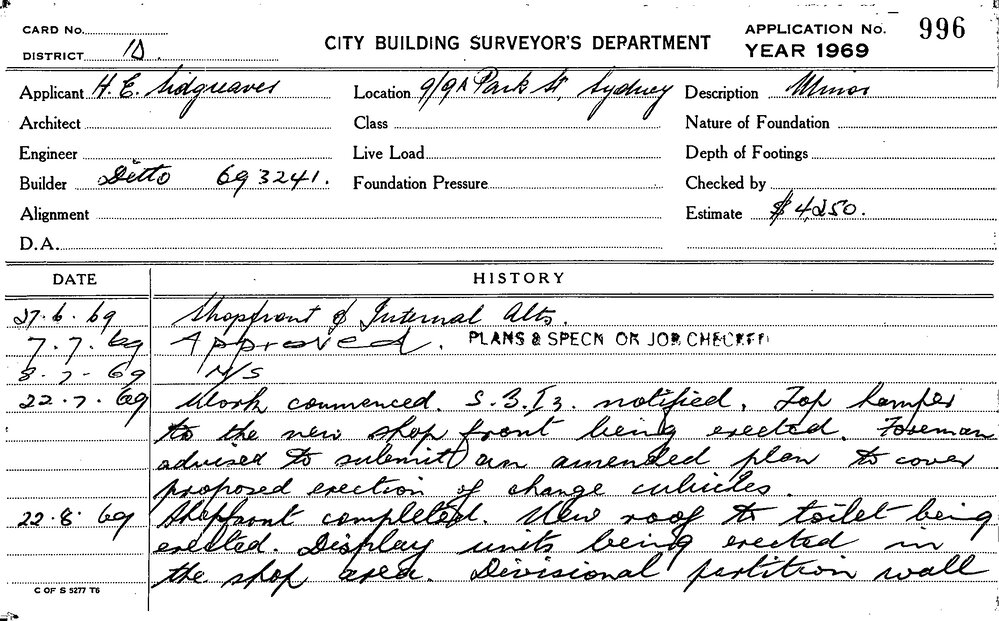 CARD No.
DISTRICT 1D.
CITY BUILDING SURVEYOR'S DEPARTMENT
APPLICATION No. 996
YEAR 1969
Applicant H. E. Sidgreaves
Location 9/9A Park St, Sydney
Description Minor
Architect
Class
Nature of Foundation
Engineer
Live Load
Depth of Footings
Builder Ditto 69 3241.
Foundation Pressure
Checked by
Alignment
Estimate $4,250.
D.A.
DATE HISTORY
27.6.69 Shopfront & Internal Alts.
7.7.69 Approved. PLANS & SPECN ON JOB CHECKED
8-7-69 N/S
22.7.69 Work commenced. S.B.I. notified. Top hamper
to the new shop front being erected. Foreman
advised to submit an amended plan to cover
proposed erection of change cubicles.
22.8.69 Shopfront completed. New roof to toilet being
erected. Display units being erected in
the shop area. Divisional partition wall
C OF S 5277 T6